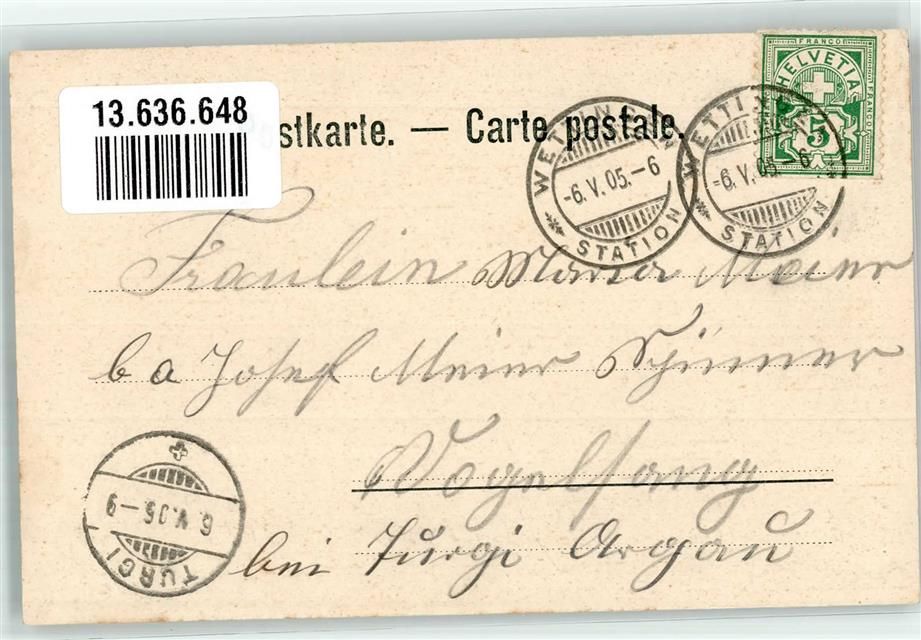 13.636.648
stkarte. — Carte postale.
FRANCO
HELVETIA
FRANCO
5
WETTINGEN
-6.V.05.-6
STATION
WETTINGEN
-6.V.05.-6
STATION
Fräulein Maria Meier
b a Josef Meier Spinner
Vogelsang
bei Turgi Argau
6.V.05-9
TURGI